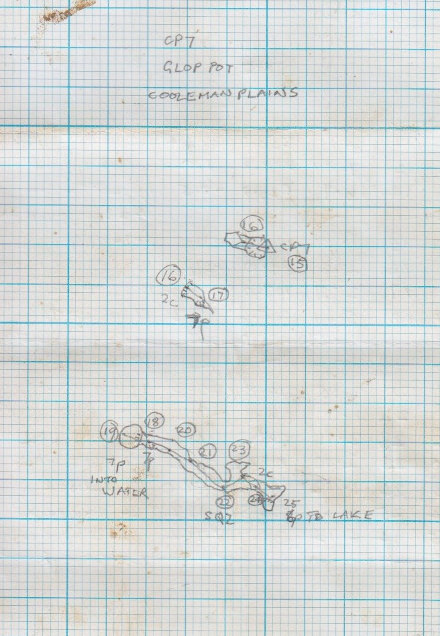 CP7
GLOP POT
COOLEMAN PLAINS
16
CP7
15
16
2C
17
7P
19
18
20
7P
INTO
WATER
7P
21
23
2C
22
SQZ
24
25
TO LAKE